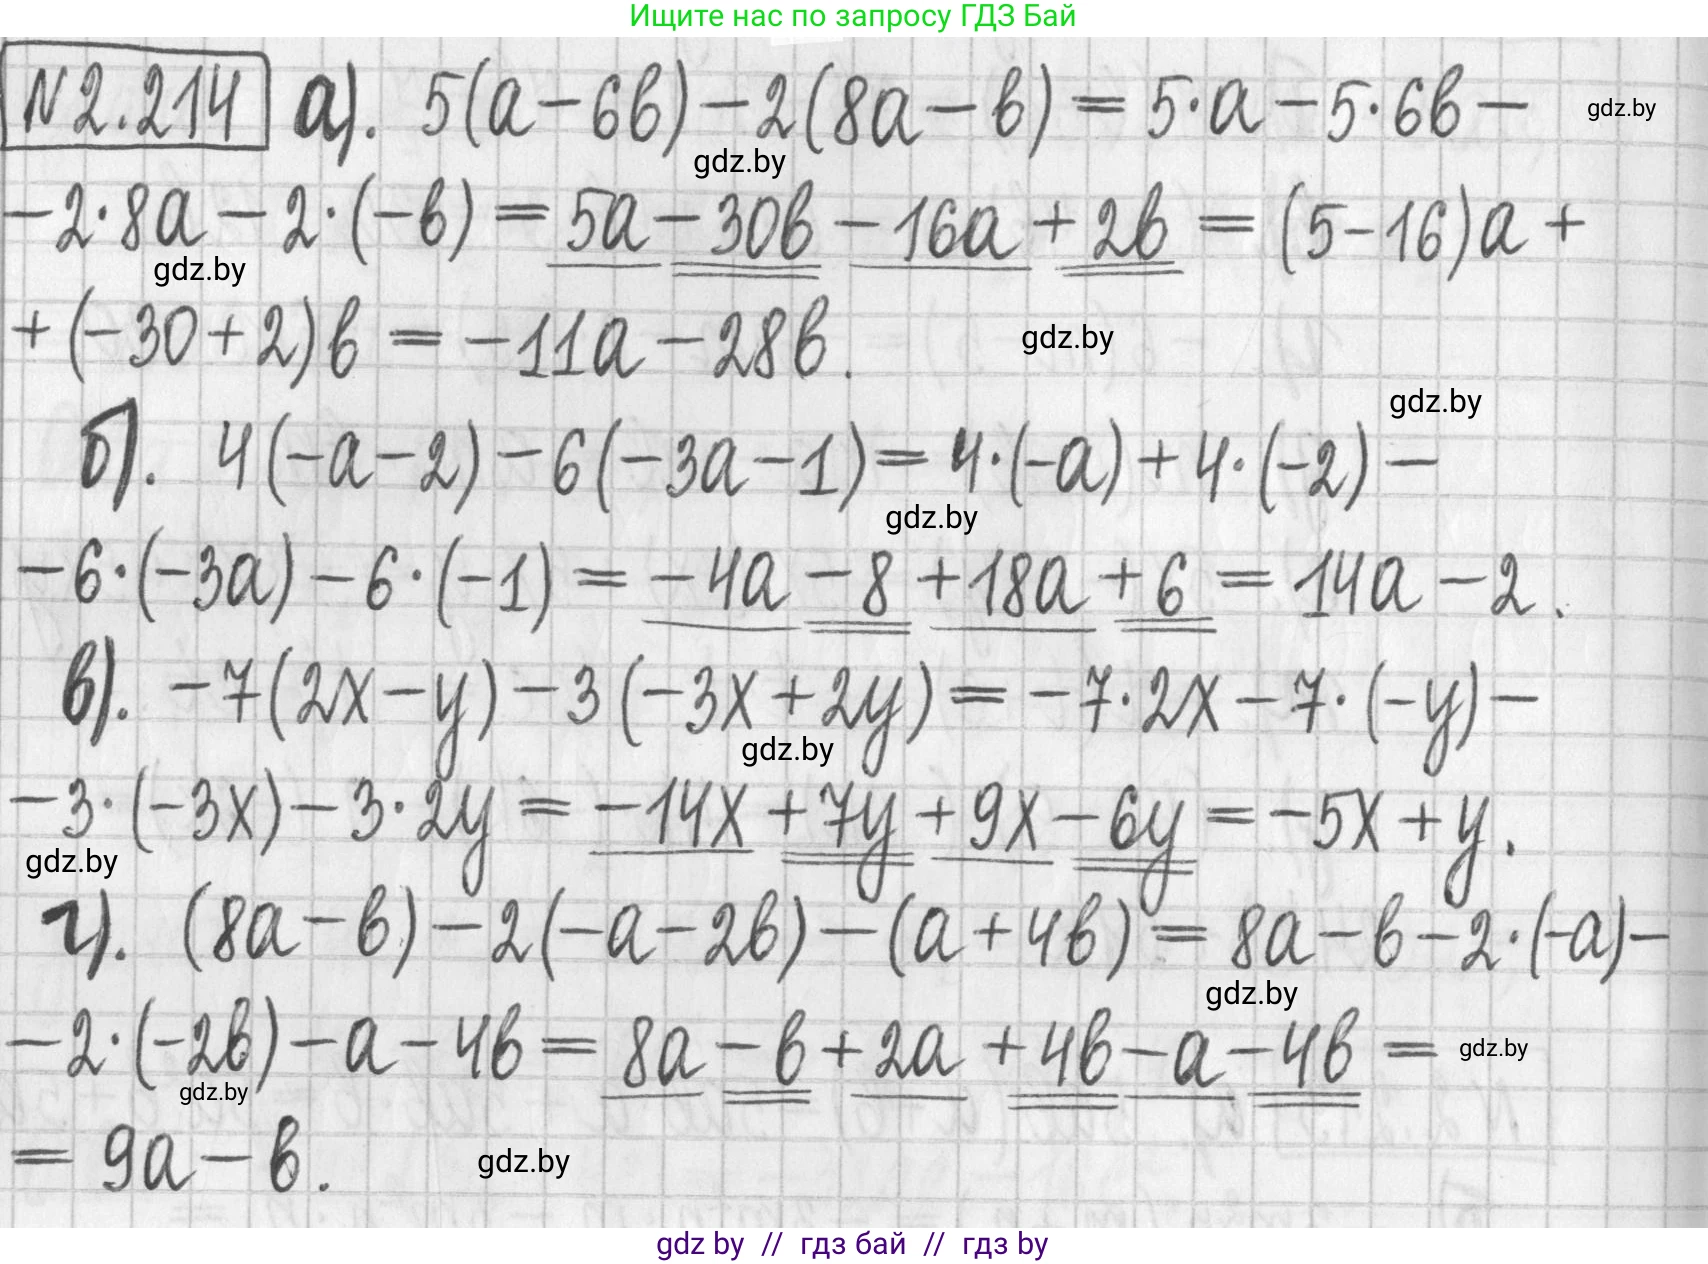 Ищите нас по запросу ГДЗ Бай
N2.214 а). 5(а-6в)-2(8а-в)=5·а-5·6в- gdz.by
gdz.by
-2·8а-2·(-в)=5а-30в-16а+2в=(5-16)а+
gdz.by
+(-30+2)в=-11а-28в. gdz.by
gdz.by
б). 4(-а-2)-6(-3а-1)=4·(-а)+4·(-2)-
gdz.by
-6·(-3а)-6·(-1)=-4а-8+18а+6=14а-2.
в). -7(2х-у)-3(-3х+2у)=-7·2х-7·(-у)-
gdz.by
-3·(-3х)-3·2у=-14х+7у+9х-6у=-5х+у.
gdz.by
г). (8а-в)-2(-а-2в)-(а+4в)=8а-в-2·(-а)-
gdz.by
-2·(-2в)-а-4в=8а-в+2а+4в-а-4в= gdz.by
gdz.by
=9а-в. gdz.by
gdz by // гдз бай // гдз by